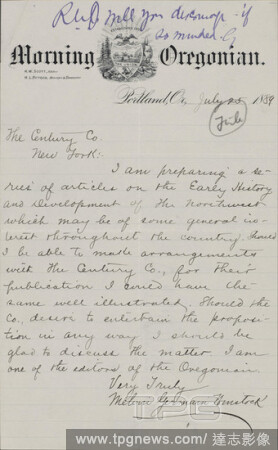 R.U.J will you
so minded G
Morning Oregonian.
H. W. SCOTT,
Portland, Or, July 25 1889
File
The Century Co.
New York:
I am preparing a se-
ries of articles on the Early History
and Development of the Northwest
which may be of some general in-
terest throughout the country. Should
I be able to make arrangements
with the Century Co., for their
publication I could have the
same well illustrated. Should the
Co., desire to entertain the proposi-
tion in any way I should be
glad to discuss the matter. I am
one of the editors of the Oregonian
Very Truly
TPG
www.tpgnews.com / 達志影像